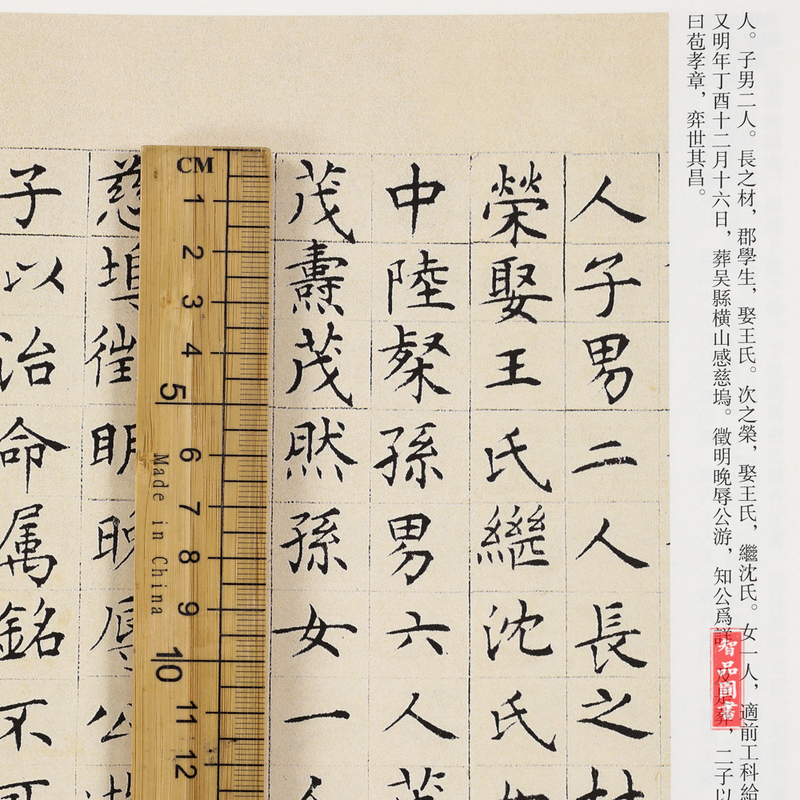 人。子男二人。長之材，郡學生，娶王氏。次之榮，娶王氏，繼沈氏。女一人，適前工科給
又明年丁酉十二月十六日，葬吴縣横山感慈塢。徵明晚辱公游，知公爲詳，葬，二子以
曰苞孝章，弈世其昌。
智品圖書
人子男二人長之材
榮娶王氏繼沈氏
中陸粲孫男六人茂
茂燾茂然孫女一人
CM
1
2
3
4
5
6
7
8
9
10
11
12
Made in China
慈塢徵明晚辱公游
子以治命属銘不可